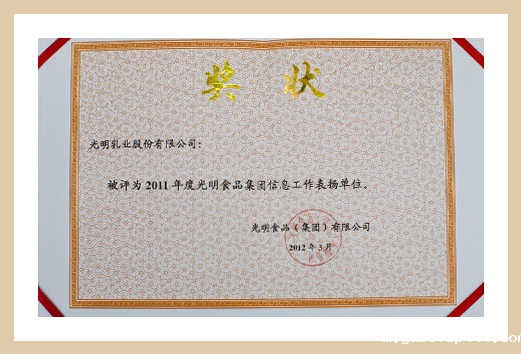 奖 状
光明乳业股份有限公司：
被评为 2011 年度光明食品集团信息工作表扬单位。
光明食品（集团）有限公司
2012 年 3 月